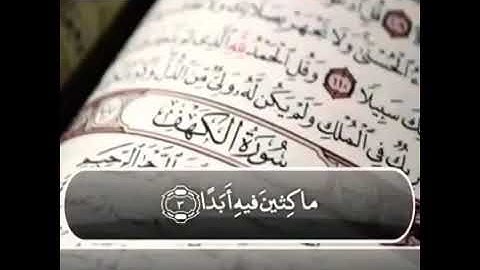 ٱلْحُسْنَىٰ وَلَا تَجْهَرْ
سَبِيلًا ١١٠ وَقُلِ ٱلْحَمْدُ لِلَّهِ
فِى ٱلْمُلْكِ وَلَمْ يَكُن لَّهُۥ وَلِىٌّ مِّنَ ٱلذُّلِّ
سُورَةُ الْكَهْفِ
الرَّحْمَٰنِ الرَّحِيمِ
مَاكِثِينَ فِيهِ أَبَدًا ٣